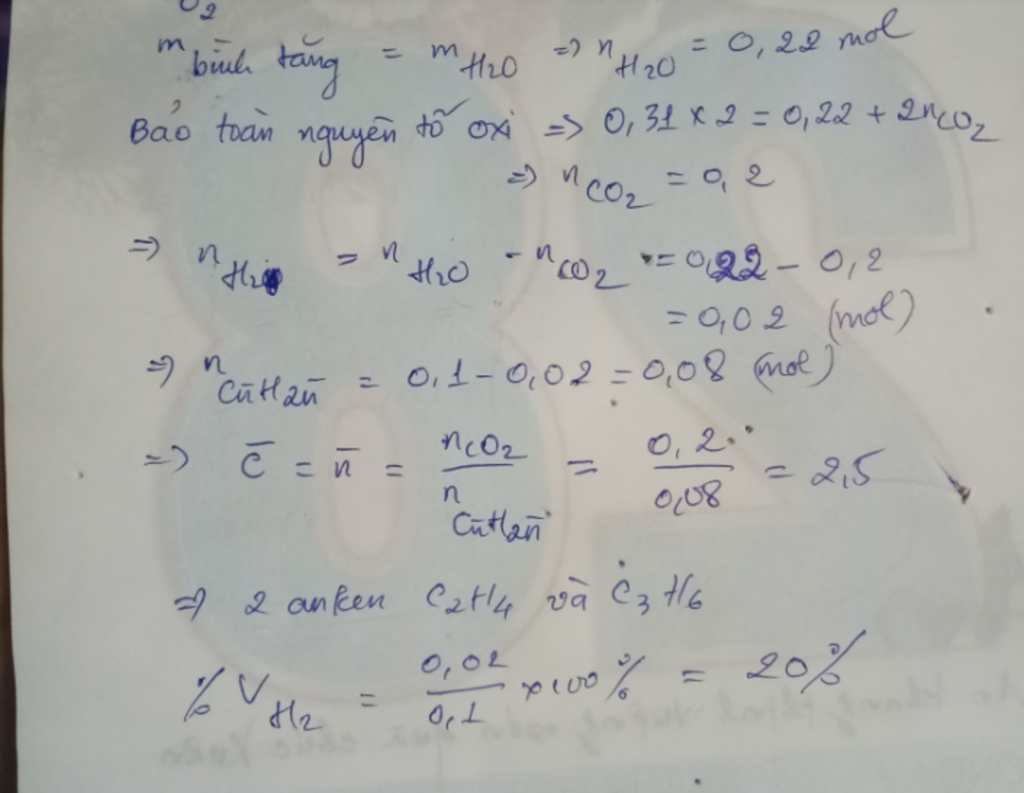 O2
m bình tăng = m H2O => n H2O = 0,22 mol
Bảo toàn nguyên tố oxi => 0,31 x 2 = 0,22 + 2nCO2
=> nCO2 = 0,2
=> nH2 = nH2O - nCO2 = 0,22 - 0,2
= 0,02 (mol)
=> n Cn̄H2n̄ = 0,1 - 0,02 = 0,08 (mol)
=> C̄ = n̄ = nCO2 / n Cn̄H2n̄ = 0,2 / 0,08 = 2,5
=> 2 anken C2H4 và C3H6
% VH2 = 0,02 / 0,1 x 100% = 20%